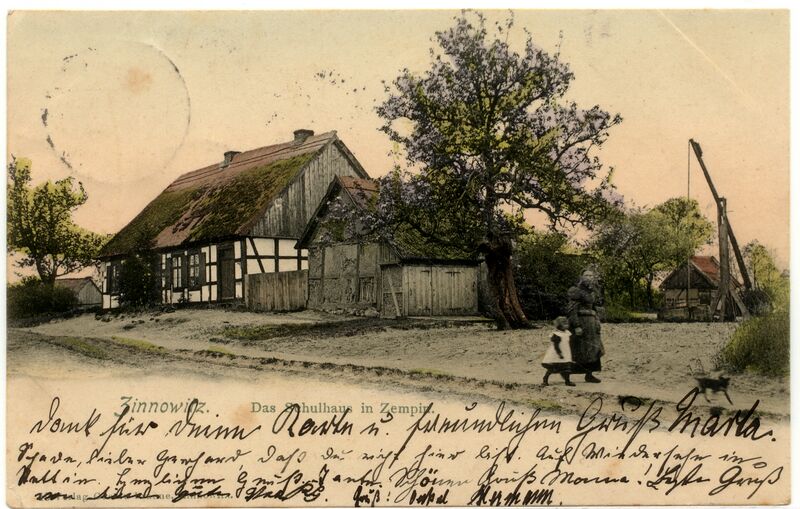 Zinnowitz. Das Schulhaus in Zempin.
Dank für Deine Karte u. freundlichen Gruß Marta.
Schade, lieber Gerhard, daß du nicht hier bist. Auf Wiedersehn in
Stettin. Herzlichen Gruß. Tante. Schönen Gruß Mama! Beste Grüße
Verlag Gruß: Onkel Hermann.